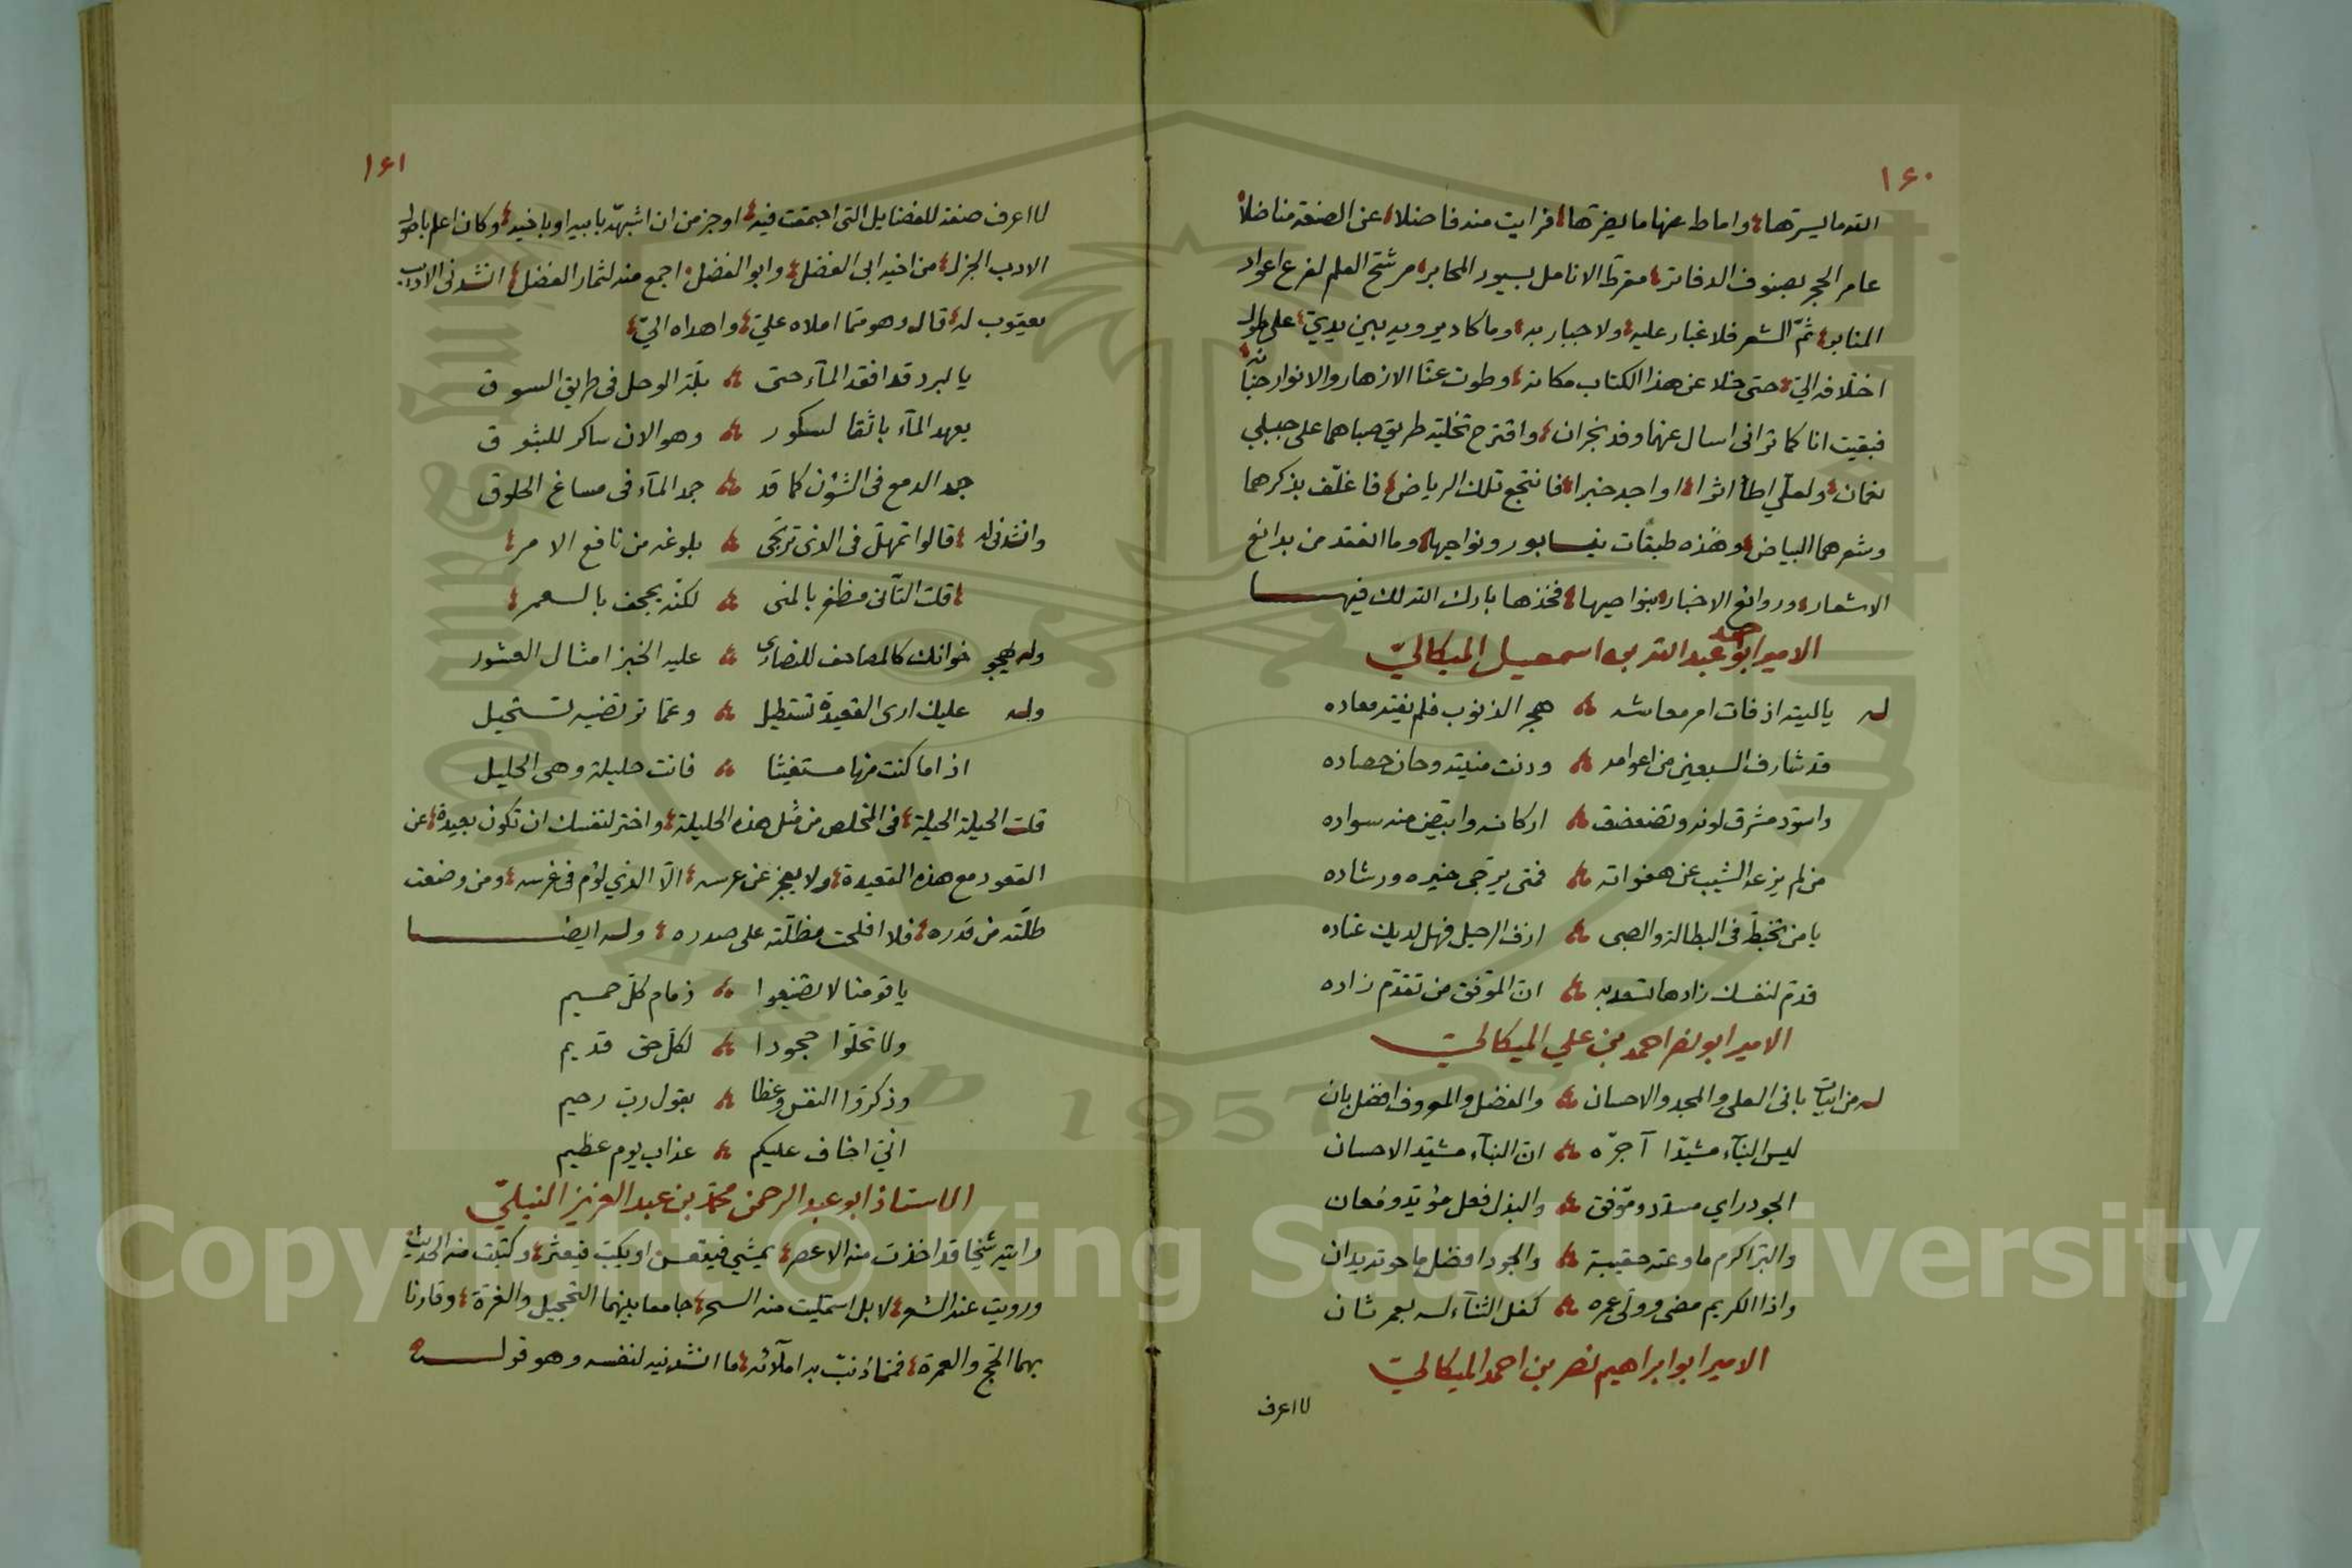 ١٦٠
الله ما يسرّها؛ واماط عنها ما يضرّها؛ فرايت منه فاضلا؛ عن الصنعة مناضلا؛
عامر الحجر بصنوف الدفاتر؛ مقرط الانامل بسيور المحابر؛ مرشح القلم لفرع اعواد
المنابر؛ ثمّ الشعر فلا غبار عليه؛ ولا جبار به؛ وما كاد يرويه بين يديّ؛ على طول
اختلافه اليّ؛ حتى خلا عن هذا الكتاب مكانه؛ وطوت عنّا الازهار والانوار جنانه؛
فبقيت انا كما تراني اسال عنهما وفد نجران؛ واقترح تخلية طريق صباهما على جبلي
نعمان؛ ولعلّي اطأ اثرا؛ او اجد خبرا؛ فانتجع تلك الرياض؛ فاغلّف بذكرهما
وشعرهما البياض؛ وهذه طبقات نيسابور ونواحيها؛ وما انعقد من بدائع
الاشعار؛ وروائع الاخبار؛ بنواصيها؛ فخذها بارك الله لك فيها
الامير ابو محمد عبد الله بن اسمعيل الميكاليّ
له يا ليته اذ فات امر معاشه ؞ هجر الذنوب فلم يفته معاده
قد شارف السبعين من اعوامه ؞ ودنت منيّته وحان حصاده
واسودّ مشرق لونه وتضعضعت ؞ اركانه وابيضّ منه سواده
من لم يزعه الشيب عن هفواته ؞ فمتى يرجّى خيره ورشاده
يا من تخبّط في البطالة والصبى ؞ ازف الرحيل فهل لديك عتاده
قدّم لنفسك زادها تسعد به ؞ انّ الموفّق من تقدّم زاده
الامير ابو نصر احمد بن علي الميكاليّ
له من ابيات باني العلى والمجد والاحسان ؞ والفضل والمعروف افضل بان
ليس البنآء مشيّدا آجرّه ؞ انّ البنآء مشيّد الاحسان
الجود راي مسدّد وموفّق ؞ والبذل فعل مؤيّد ومُعان
والبرّ اكرم ما وعته حقيبة ؞ والجود افضل ما حوته يدان
واذا الكريم مضى وولّى عمره ؞ كفل الثنآء له بعمر ثان
الامير ابو ابراهيم نصر بن احمد الميكاليّ
لا اعرف
١٦١
لا اعرف صنعة للفضايل التي اجتمعت فيه؛ اوجز من ان اشبهّه بابيه او باخيه؛ وكان اعلم باصول
الادب الجزل؛ من اخيه ابي الفضل؛ وابو الفضل؛ اجمع منه لثمار الفضل؛ انشدني الاديب
يعقوب له؛ قال وهو ممّا املاه عليّ؛ واهداه اليّ؛
يا لبرد قد افقد المآء حتى ؞ بلّة الوحل في طريق السوق
يعهد المآء باثقا لسكور ؞ وهو الان ساكر للبثوق
جمد الدمع في الشؤن كما قد ؞ جمد المآء في مساغ الحلوق
وانشدني له ؛ قالوا تمهّل في الذي ترتجى ؞ بلوغه من نافع الامر؛
؛ قلت التأنّي مظفر بالمنى ؞ لكنّه يجحف بالعمر؛
وله يهجو خوانك كالمصاحف للنصارى ؞ عليه الخبز امثال العشور
وله عليك ارى القعيدة تستطيل ؞ وعمّا ترتضيه تستحيل
اذا ما كنت منها مستغيثا ؞ فانت حليلة وهي الحليل
قلت الحيلة الحيلة؛ في التخلص من مثل هذه الحليلة؛ واختر لنفسك ان تكون بعيدة؛ عن
القعود مع هذه القعيدة؛ ولا يعجز عن عرسه؛ الّا الذي لؤم في غرسه؛ ومن وضعت
طلّته من قدره؛ فلا افلحت مظلّته على صدره؛ وله ايضا
يا قومنا لا تضيّعوا ؞ ذمام كلّ حميم
ولا تخلّوا جحودا ؞ لكلّ حق قديم
وذكرّوا النفس وعظا ؞ بقول ربّ رحيم
انّي اخاف عليكم ؞ عذاب يوم عظيم
الاستاذ ابو عبد الرحمن محمّد بن عبد العزيز النيليّ
رايته شيخا قد اخذت منه الاعصر؛ يمشي فيتقعس او يكبّ فيعثر؛ وكتبت منه الحديث
ورويت عنه الشعر؛ لا بل استمليت منه السحر؛ جامعا بينهما التحجيل والغرّة؛ وقارنا
بهما الحجّ والعمرة؛ فمما زنت به املآئه؛ ما انشدنيه لنفسه وهو قوله
Copyright © King Saud University
1957